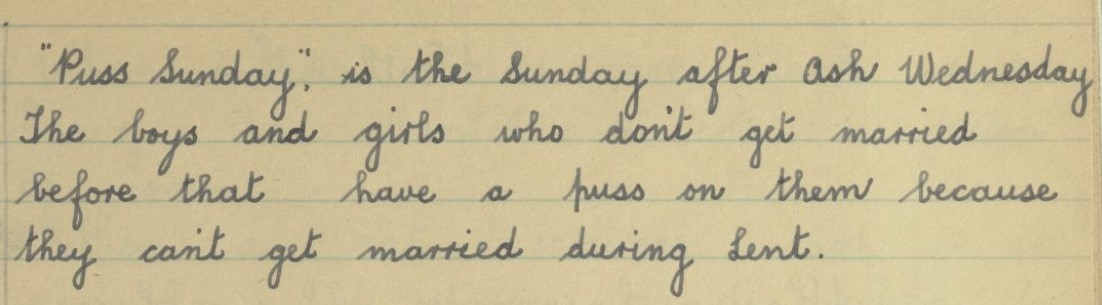 "Puss Sunday," is the Sunday after Ash Wednesday
The boys and girls who don't get married
before that have a puss on them because
they can't get married during Lent.